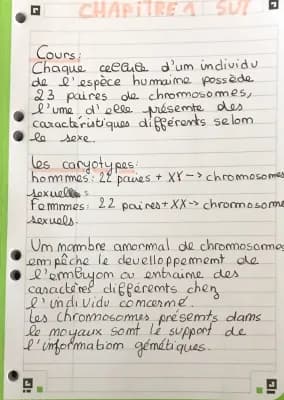 CHAPITRE 1 SVT
Cours:
Chaque cellule d'um individu
de l'espèce humaine possède
23 paires de chromosomes,
l'ume d'elle présente des
caractéristiques différents selom
le sexe.
Les caryotypes:
hommes: 22 paires + XY -> chromosomes
sexuels:
Femmes: 22 paires + XX -> chromosomes
sexuels.
Um mombre amormal de chromosomes
empêche le devellopement de
l'embryom ou entraime des
caractères différents chez
l'individu comcermé.
Les chromosomes présemts dams
le moyaux somt le support de
l'imformatiom gémétiques.